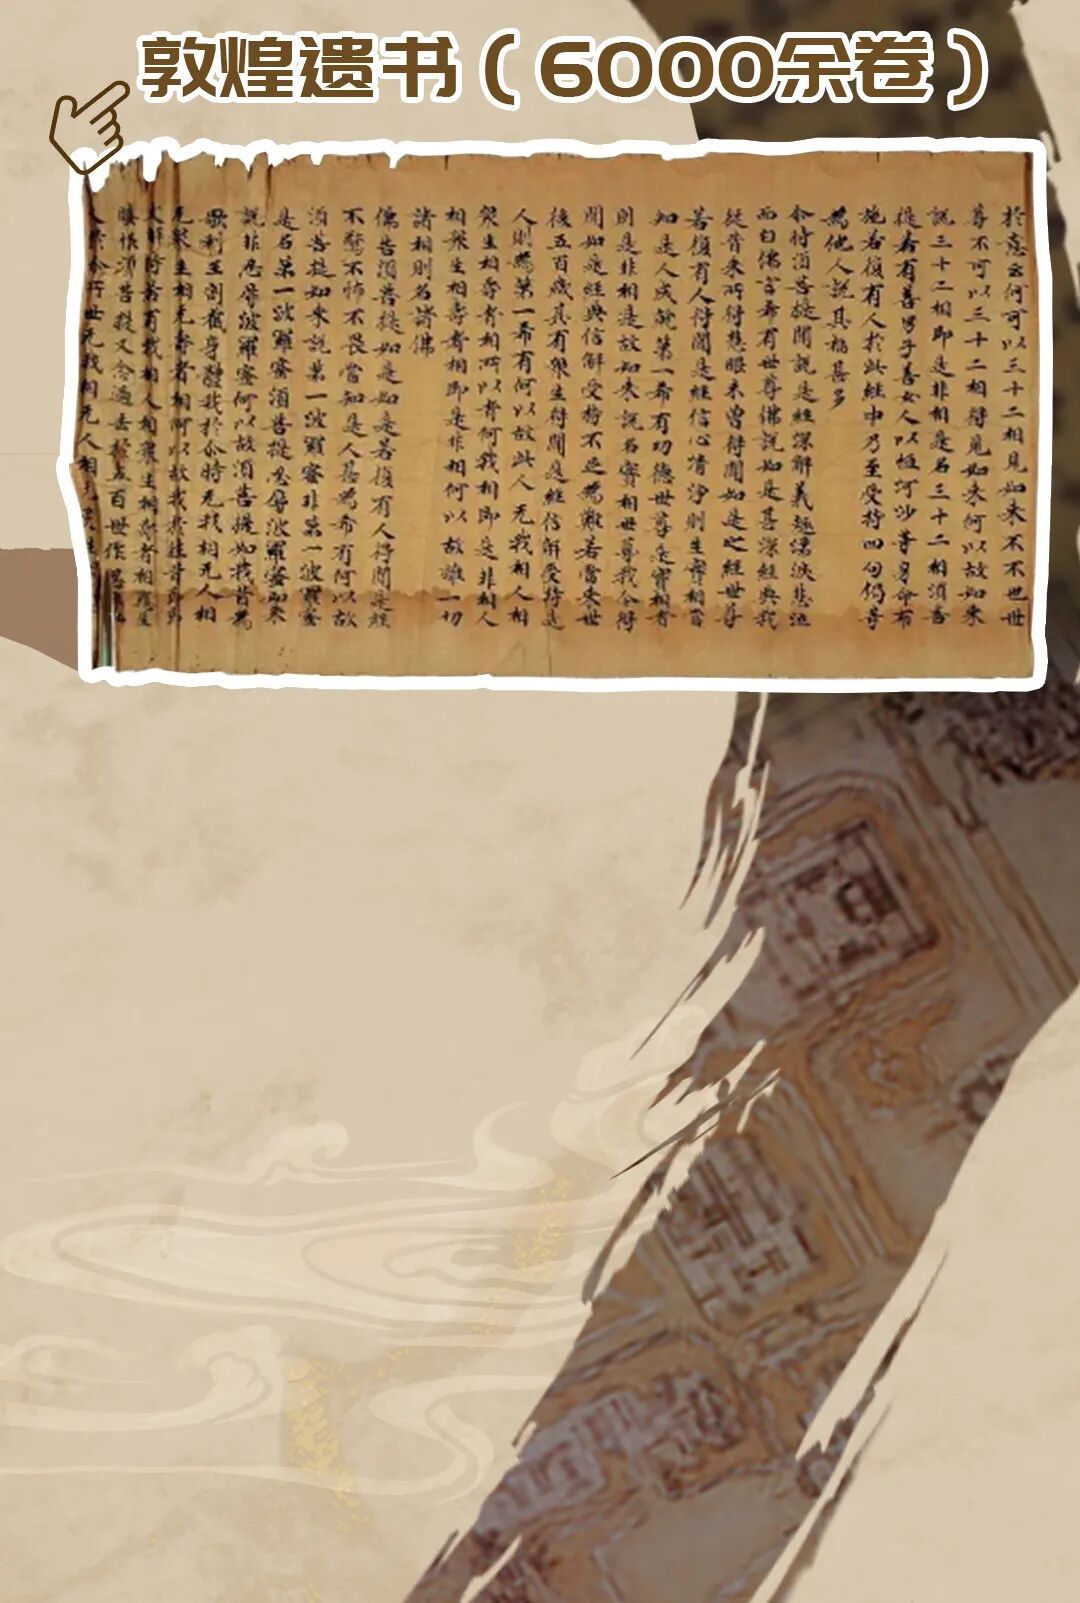 敦煌遗书（6000余卷）
於意云何可以三十二相見如来不不也世
尊不可以三十二相得見如来何以故如来
說三十二相即是非相是名三十二相須菩
提若有善男子善女人以恒河沙等身命布
施若復有人於此經中乃至受持四句偈等
為他人說其福甚多
尒時須菩提聞說是經深解義趣涕淚悲泣
而白佛言希有世尊佛說如是甚深經典我
從昔来所得慧眼未曾得聞如是之經世尊
若復有人得聞是經信心清淨則生實相當
知是人成就第一希有功德世尊是實相者
則是非相是故如来說名實相世尊我今得
聞如是經典信解受持不足為難若當来世
後五百歲其有衆生得聞是經信解受持是
人則為第一希有何以故此人无我相人相
衆生相壽者相所以者何我相即是非相人
相衆生相壽者相即是非相何以故離一切
諸相則名諸佛
佛告須菩提如是如是若復有人得聞是經
不驚不怖不畏當知是人甚為希有何以故
須菩提如来說第一波羅蜜非第一波羅蜜
是名第一波羅蜜須菩提忍辱波羅蜜如来
說非忍辱波羅蜜何以故須菩提如我昔為
歌利王割截身體我於尒時无我相无人相
无衆生相无壽者相何以故我於往昔節節
支解時若有我相人相衆生相壽者相應生
瞋恨須菩提又念過去於五百世作忍
人於尒所世无我相无人相无